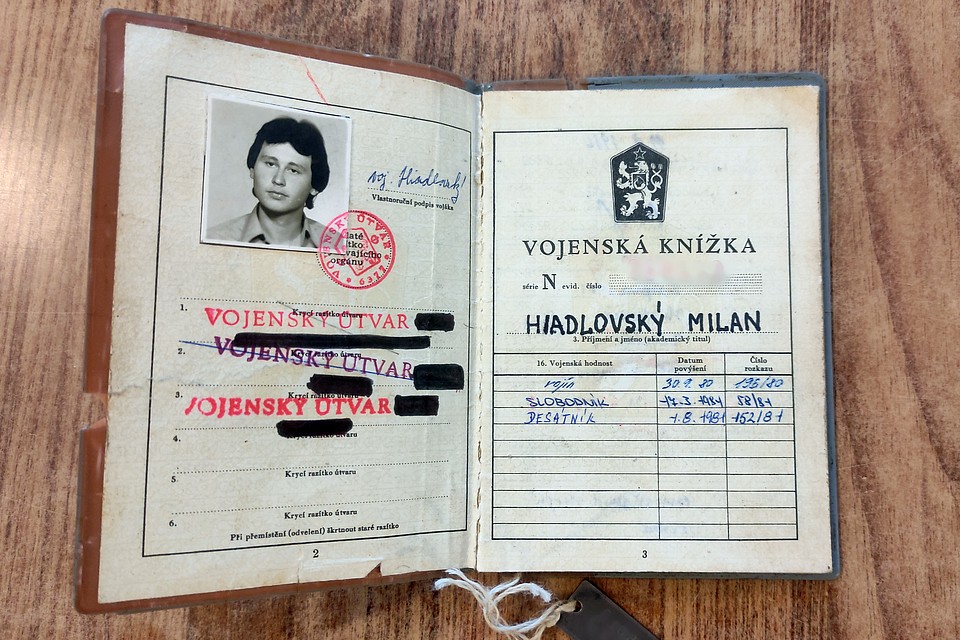 voj. Hiadlovský
Vlastnoruční podpis vojáka
VOJENSKÝ ÚTVAR
6377
1.
Krycí razítko útvaru
VOJENSKÝ ÚTVAR
2.
Krycí razítko útvaru
VOJENSKÝ ÚTVAR
3.
Krycí razítko útvaru
VOJENSKÝ ÚTVAR
4.
Krycí razítko útvaru
5.
Krycí razítko útvaru
6.
Krycí razítko útvaru
Při přemístění (odvelení) škrtnout staré razítko
2
VOJENSKÁ KNÍŽKA
série N evid. číslo
HIADLOVSKÝ MILAN
3. Příjmení a jméno (akademický titul)
16. Vojenská hodnost Datum povýšení Číslo rozkazu
vojín 30.9.80 196/80
SLOBODNÍK 17.3.1981 58/81
DESÁTNÍK 1.8.1981 152/81
3